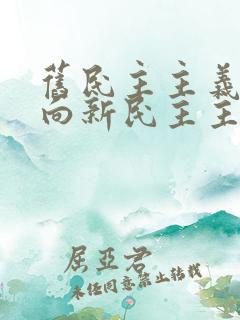 舊民主主義
向新民主主
屈亞君
未經同意禁止轉載